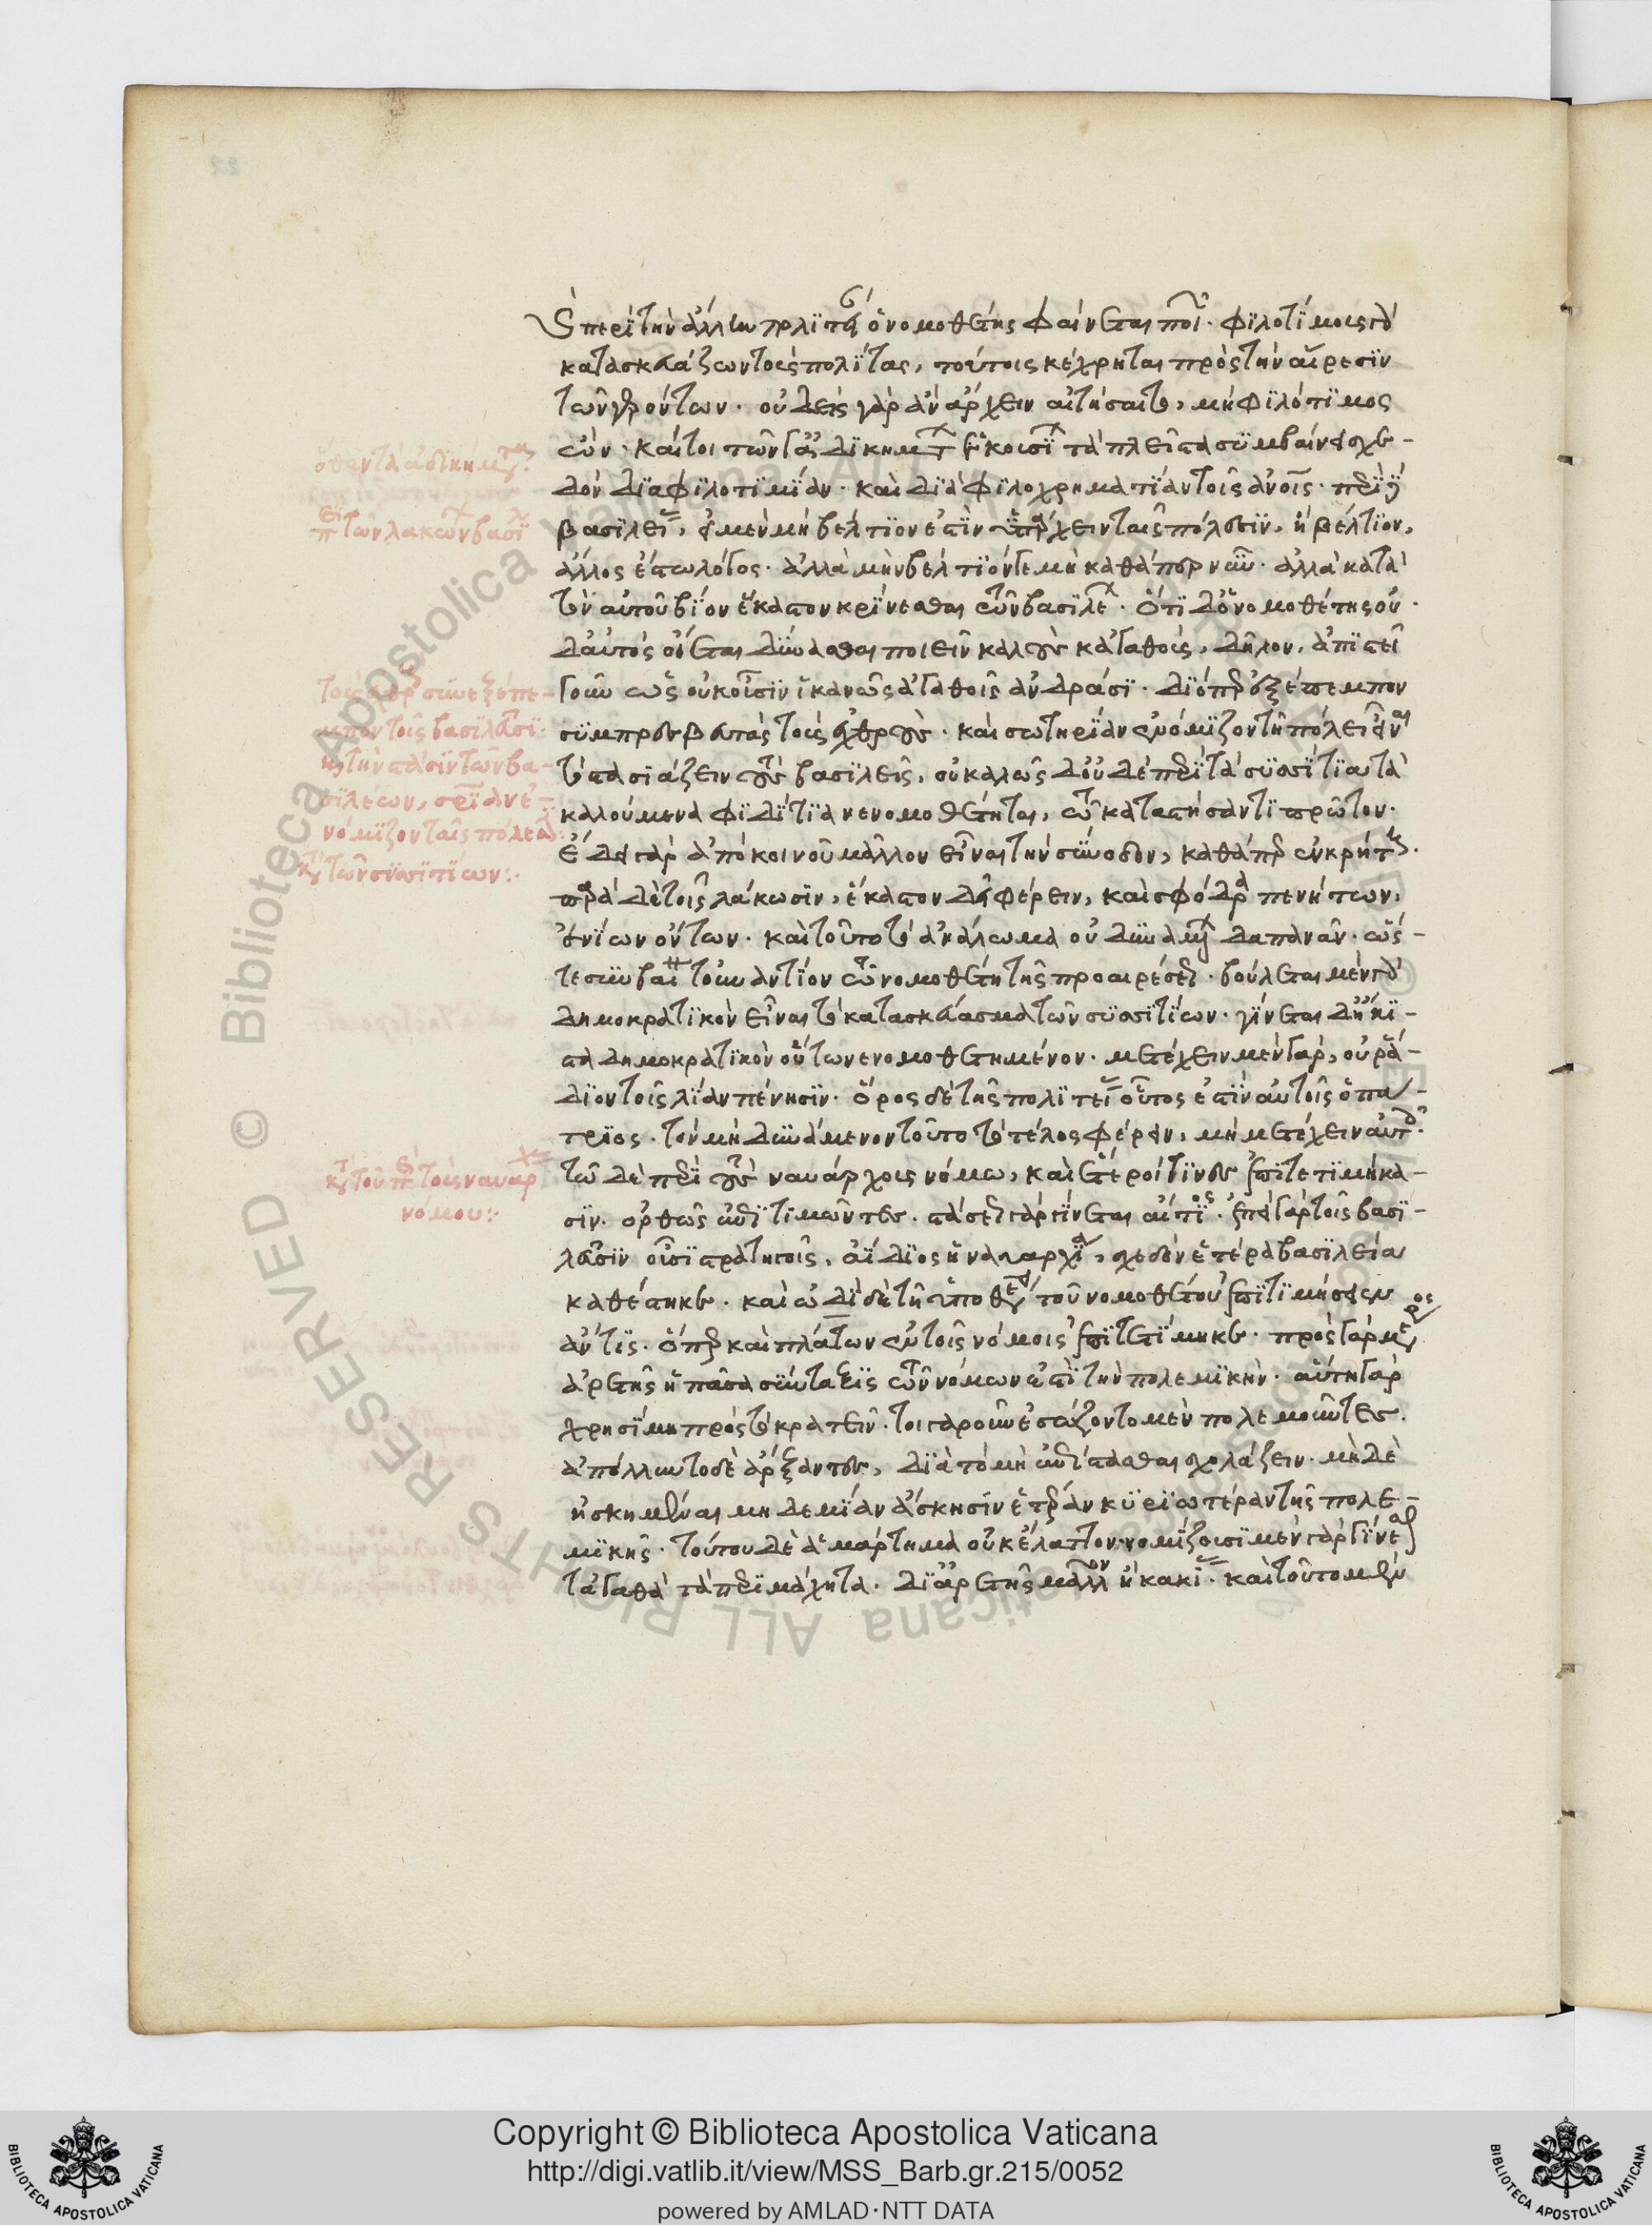 περὶ τὴν ἄλλην πολιτείαν ὁ νομοθέτης φαίνεται ποιῶν· φιλοτίμους γὰρ
κατασκευάζων τοὺς πολίτας, τούτοις κέχρηται πρὸς τὴν αἵρεσιν
τῶν γερόντων· οὐδεὶς γὰρ ἂν ἄρχειν αἰτήσαιτο, μὴ φιλότιμος
ὤν· καίτοι τῶν γ' ἀδικημάτων ἑκουσίων τὰ πλεῖστα συμβαίνει σχε-
δὸν διὰ φιλοτιμίαν· καὶ διὰ φιλοχρηματίαν τοῖς ἀνοις· περὶ δὲ
βασιλείας, εἰ μὲν μὴ βέλτιον ἐστὶν ὑπάρχειν ταῖς πόλεσιν, ἢ βέλτιον,
ἄλλος ἔστω λόγος· ἀλλὰ μὴν βέλτιόν γε μὴ καθάπερ νῦν· ἀλλὰ κατὰ
τὸν αὑτοῦ βίον ἕκαστον κρίνεσθαι τῶν βασιλέων· ὅτι δ' ὁ νομοθέτης οὐ-
δ' αὐτὸς οἴεται δύνασθαι ποιεῖν καλοὺς κἀγαθοὺς, δῆλον, ἀπιστεῖ
γοῦν ὡς οὐκ οὖσιν ἱκανῶς ἀγαθοῖς ἀνδράσι· διόπερ ἐξέπεμπον
συμπρεσβευτὰς τοὺς ἐχθροὺς· καὶ σωτηρίαν ἐνόμιζον τῇ πόλει εἶναι
τὸ στασιάζειν τοὺς βασιλεῖς, οὐ καλῶς δ' οὐδὲ περὶ τὰ συσσίτια τὰ
καλούμενα φιδίτια νενομοθέτηται, τῷ καταστήσαντι πρῶτον·
ἔδει γὰρ ἀπὸ κοινοῦ μᾶλλον εἶναι τὴν σύνοδον, καθάπερ ἐν κρήτῃ·
παρὰ δὲ τοῖς λάκωσιν, ἕκαστον δεῖ φέρειν, καὶ σφόδρα πενήτων,
ἐνίων ὄντων· καὶ τοῦτο τὸ ἀνάλωμα οὐ δυναμένων δαπανᾶν· ὥσ-
τε συμβαίνει τοὐναντίον τῷ νομοθέτῃ τῆς προαιρέσεως· βούλεται μὲν γὰρ
δημοκρατικὸν εἶναι τὸ κατασκεύασμα τῶν συσσιτίων· γίνεται δ' ἥκι-
στα δημοκρατικὸν οὕτω νενομοθετημένον· μετέχειν μὲν γὰρ, οὐ ῥᾴ-
διον τοῖς λίαν πένησιν· ὅρος δὲ τῆς πολιτείας οὗτος ἐστὶν αὐτοῖς ὁ πά-
τριος· τὸν μὴ δυνάμενον τοῦτο τὸ τέλος φέρειν, μὴ μετέχειν αὐτῆς·
τῷ δὲ περὶ τοὺς ναυάρχους νόμῳ, καὶ ἕτεροί τινες ἐπιτετιμήκα-
σιν· ὀρθῶς ἐπιτιμῶντες· στάσεως γὰρ γίνεται αἴτιος· ἐπεὶ γὰρ τοῖς βασι-
λεῦσιν οὖσι στρατηγοῖς, ἀΐδιος ἡ ναυαρχία, σχεδὸν ἑτέρα βασιλεία
καθέστηκε· καὶ ὡδὶ δὲ τῇ ὑποθέσει τοῦ νομοθέτου ἐπιτιμήσειεν
ἄν τις· ὅπερ καὶ πλάτων ἐν τοῖς νόμοις ἐπιτετίμηκε· πρὸς γὰρ μέρος
ἀρετῆς ἡ πᾶσα σύνταξις τῶν νόμων ἐστὶ τὴν πολεμικήν· αὕτη γὰρ
χρησίμη πρὸς τὸ κρατεῖν· τοιγαροῦν ἐσώζοντο μὲν πολεμοῦντες·
ἀπόλλυντο δὲ ἄρξαντες, διὰ τὸ μὴ ἐπίστασθαι σχολάζειν· μὴ δὲ
ἠσκηκέναι μηδεμίαν ἄσκησιν ἑτέραν κυριωτέραν τῆς πολε-
μικῆς· τούτου δὲ ἁμάρτημα οὐκ ἔλαττον· νομίζουσι μὲν γὰρ γίνεσθαι
τἀγαθὰ τὰ περιμάχητα· δι' ἀρετῆς μᾶλλον ἢ κακίας· καὶ τοῦτο μὲν
ὅθεν τὰ ἀδικήματα·
περὶ τῶν λακώνων βασιλέων
τοὺς ἐχθροὺς συνεξέπε-
μπον τοῖς βασιλεῦσι·
καὶ τὴν στάσιν τῶν βα-
σιλέων, σωτηρίαν ἐ-
νόμιζον ταῖς πόλεσι·
κατὰ τῶν συσσιτίων:·
κατὰ τοῦ περὶ τοὺς ναυάρχους
νόμου:·
Copyright © Biblioteca Apostolica Vaticana
http://digi.vatlib.it/view/MSS_Barb.gr.215/0052
powered by AMLAD·NTT DATA
BIBLIOTECA APOSTOLICA VATICANA
BIBLIOTECA APOSTOLICA VATICANA